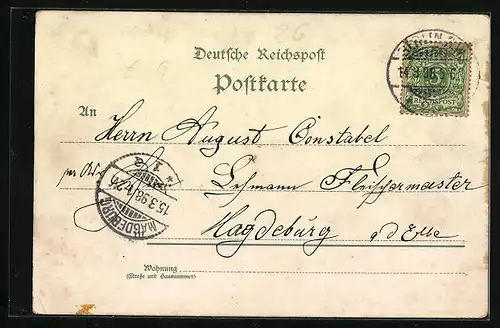 Deutsche Reichspost
Postkarte
14.3.98
REICHSPOST
An
Herrn August Constabel
per Adr.
Lehmann Fleischermeister
MAGDEBURG
15.3.98
Magdeburg a/d Elbe
Wohnung
(Straße und Hausnummer)